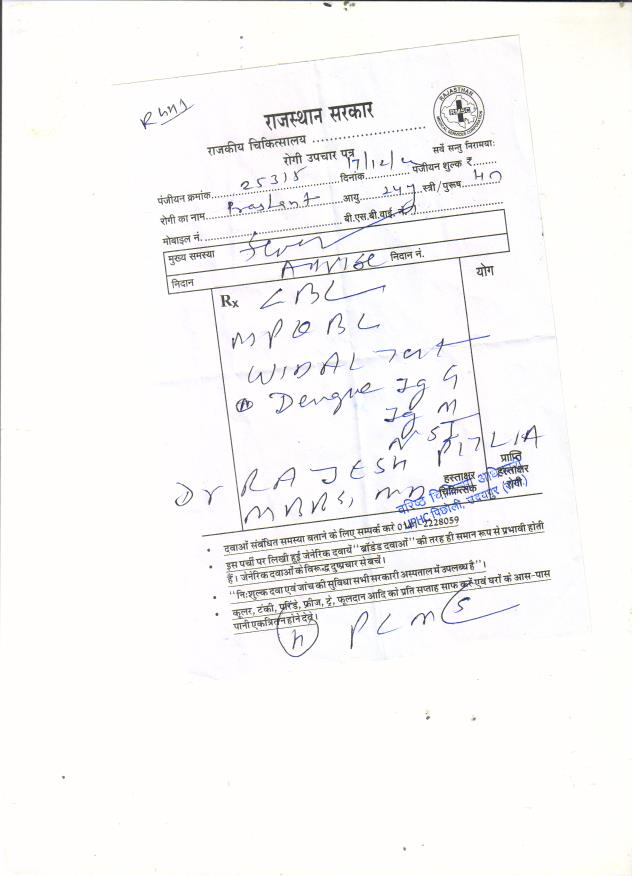 राजस्थान सरकार
RAJASTHAN
MEDICAL SERVICES CORPORATION
राजकीय चिकित्सालय
रोगी उपचार पत्र
सर्वे सन्तु निरामयाः
पंजीयन क्रमांक 25315 दिनांक 17/12/2 पंजीयन शुल्क ₹
रोगी का नाम Prashant आयु 24 y स्त्री/पुरूष
मोबाइल नं. बी.एस.बी.वाई.
मुख्य समस्या fever
निदान Advise निदान नं.
Rx CBC योग
MP
WIDAL Test
Dengue Ig G
Ig M
NSI
Dr RAJESH PITLIA
MBBS, MD
हस्ताक्षर चिकित्सक
प्राप्ति हस्ताक्षर (रोगी)
वरिष्ठ चिकित्सा अधिकारी
दवाओं संबंधित समस्या बताने के लिए सम्पर्क करे 0141-2228059
इस पर्ची पर लिखी हुई जेनेरिक दवायें "ब्रॉडेड दवाओं" की तरह ही समान रूप से प्रभावी होती
हैं। जेनेरिक दवाओं के विरूद्ध दुष्प्रचार से बचें।
"निःशुल्क दवा एवं जांच की सुविधा सभी सरकारी अस्पताल में उपलब्ध है"।
कूलर, टंकी, परिंडे, फ्रीज, ट्रे, फूलदान आदि को प्रति सप्ताह साफ करें एवं घरों के आस-पास
पानी एकत्रित न होने देवे।